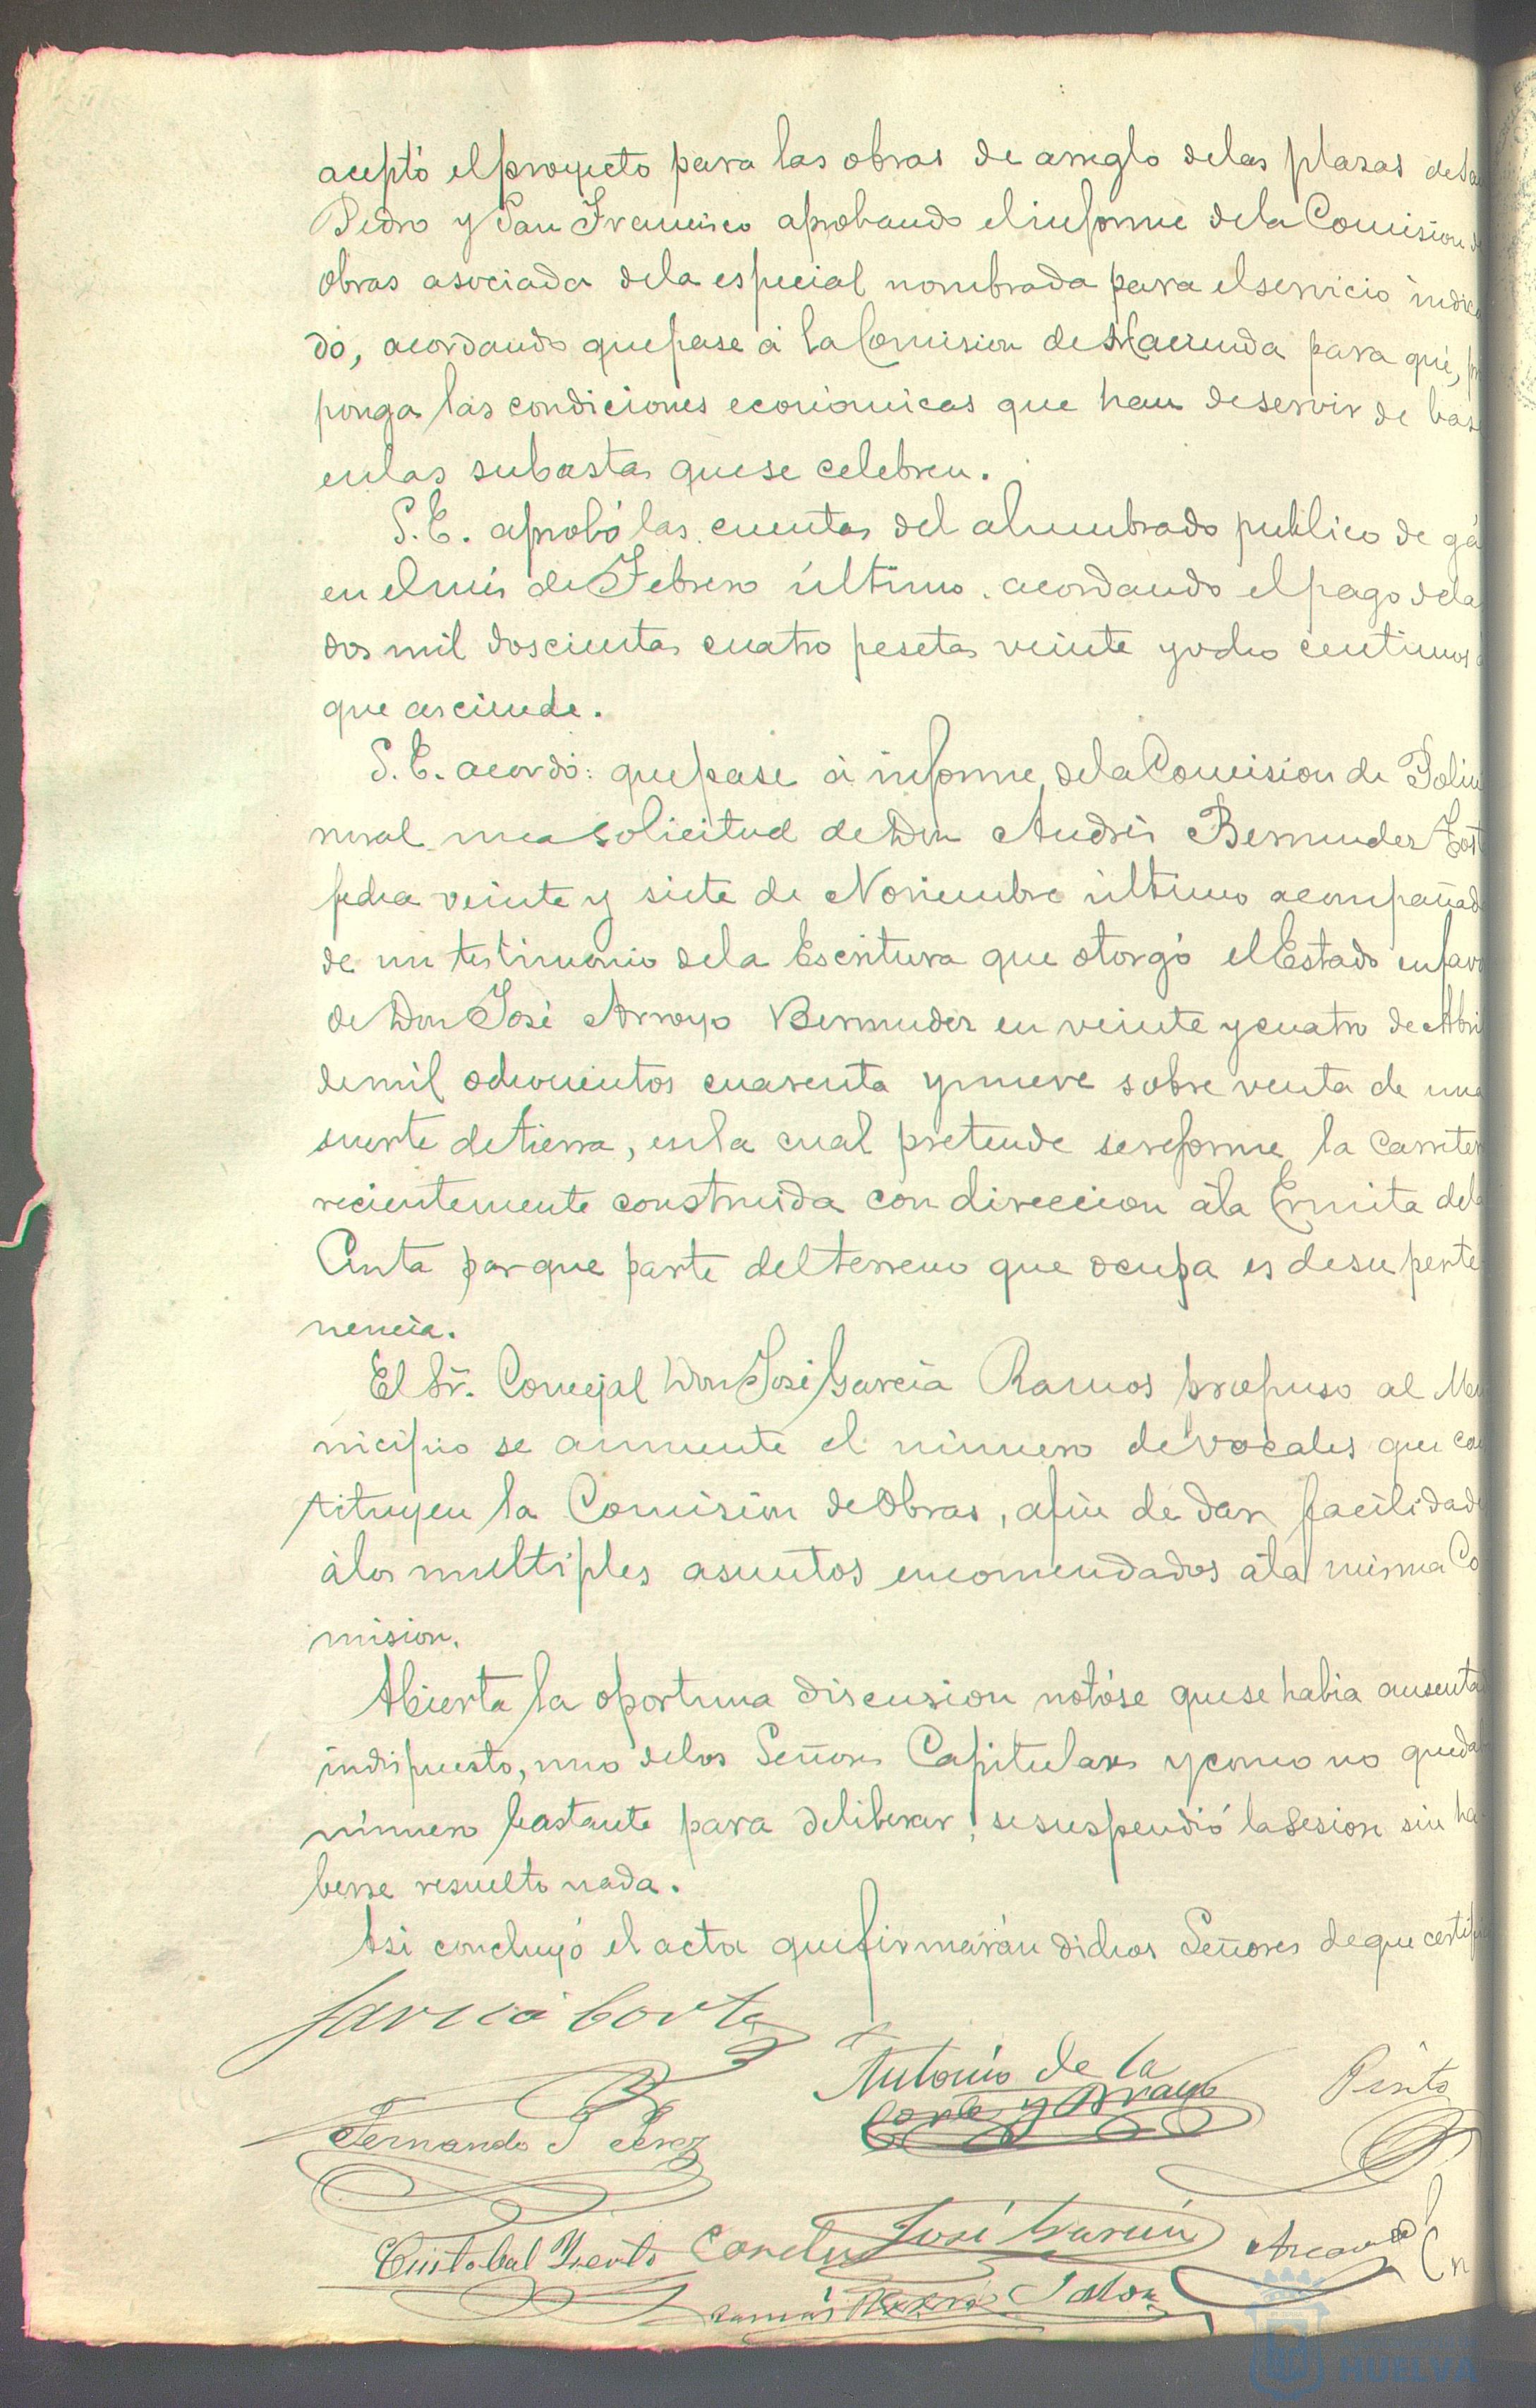 aceptó el proyecto para las obras de arreglo de las plazas de Sa
Pedro y San Francisco aprobando el informe de la Comision d
Obras asociada de la especial nombrada para el servicio indica
do, acordando que pase á la Comision de Hacienda para que, pro
ponga las condiciones económicas que han de servir de bas
en las subastas que se celebren.
S. E. aprobó las cuentas del alumbrado publico de gá
en el més de Febrero último. acordando el pago de la
dos mil doscientas cuatro pesetas veinte y ocho centimos á
que asciende.
S. E. acordó: que pase á informe de la Comision de Polici
rural una solicitud de Don Andrés Bermudez
fecha veinte y siete de Noviembre último acompañad
de un testimonio de la Escritura que otorgó el Estado en favo
de Don José Arroyo Bermudez en veinte y cuatro de Abri
de mil ochocientos cuarenta y nueve sobre venta de una
suerte de tierra, en la cual pretende se reforme la carreter
recientemente construida con direccion á la Ermita de la
Cinta porque parte del terreno que ocupa es de su perte
nencia.
El Sr. Concejal Don José Garcia Ramos propuso al Mu
nicipio se aumente el número de vocales que cons
tituyen la Comisión de Obras, afin de dar facilidade
á los multiples asuntos encomendados á la misma Co
mision.
Abierta la oportuna discusion notóse que se habia ausenta
indispuesto, uno de los Señores Capitulares y como no queda
número bastante para deliberar, se suspendió la Sesion sin ha
berse resuelto nada.
Asi concluyó el acta que firmarán dichos Señores de que certific
Garcia Corte
Antonio de la
Corte y Bravo
Pinto
Fernando P Perez
Cristobal
José Garcia
HUELVA